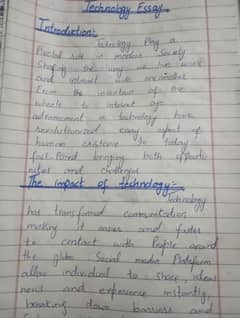 Technology Essay.
Introduction:
Technology Play a
Pivotal role in modern Society
Shaping the way we live work
and interact with one another
From the invention of the
wheels to internet age
advancement in technology have
revolutionized every aspect of
human existence In today
fast-Paced bringing both opportu
nities and challenges
The impact of technology:-
Technology
has transformed communication
making it easier and faster
to contact with People around
the globe Social media Platform
allow individual to share ideas
news and experience instantly,
breaking down barriers and